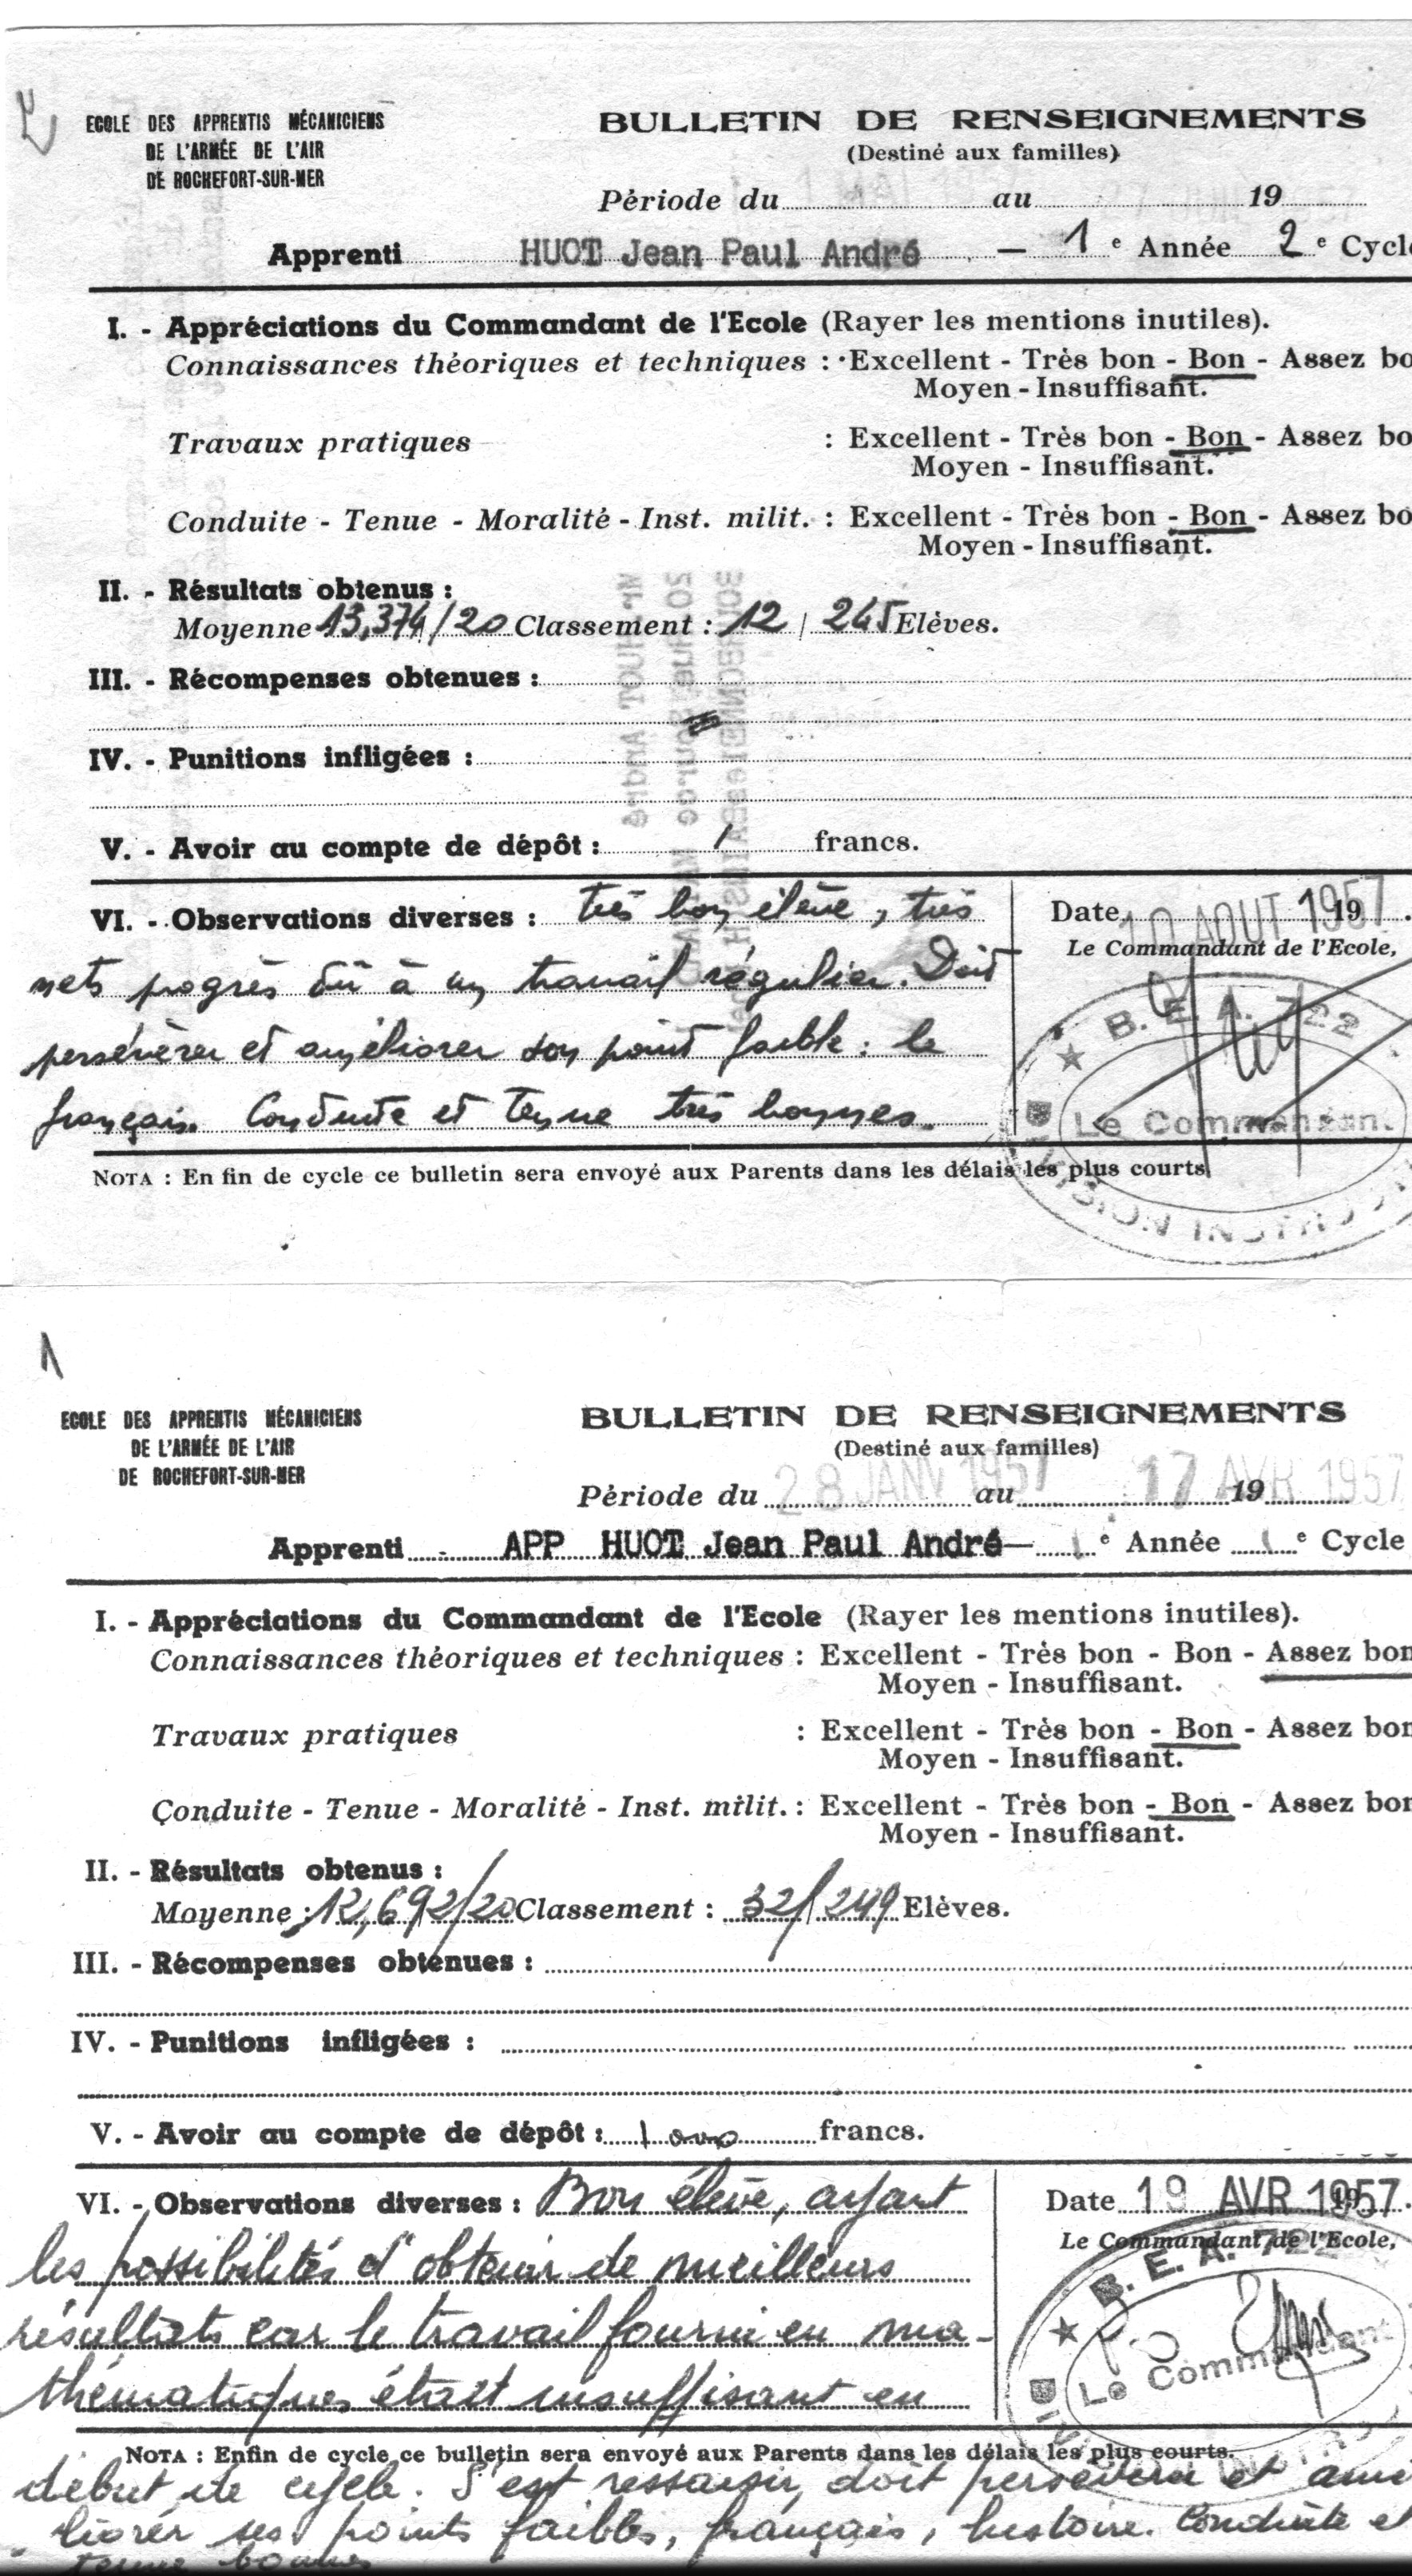 2
ECOLE DES APPRENTIS MÉCANICIENS
DE L'ARMÉE DE L'AIR
DE ROCHEFORT-SUR-MER
BULLETIN DE RENSEIGNEMENTS
(Destiné aux familles)
Période du au 19
Apprenti HUOT Jean Paul André — 1e Année 2e Cycle
I. - Appréciations du Commandant de l'Ecole (Rayer les mentions inutiles).
Connaissances théoriques et techniques : Excellent - Très bon - Bon - Assez bo
Moyen - Insuffisant.
Travaux pratiques : Excellent - Très bon - Bon - Assez bo
Moyen - Insuffisant.
Conduite - Tenue - Moralité - Inst. milit. : Excellent - Très bon - Bon - Assez bo
Moyen - Insuffisant.
II. - Résultats obtenus :
Moyenne 13,374/20 Classement : 12 / 245 Elèves.
III. - Récompenses obtenues :
IV. - Punitions infligées :
V. - Avoir au compte de dépôt : / francs.
VI. - Observations diverses : très bon élève, très
nets progrès dû à un travail régulier. Doit
persévérer et améliorer son point faible : le
français. Conduite et tenue très bonnes.
Date 10 AOUT 1957 19 .
Le Commandant de l'Ecole,
★ B. E. A. 722
Le Commandant
DIVISION INSTRUCT
NOTA : En fin de cycle ce bulletin sera envoyé aux Parents dans les délais les plus courts.
1
ECOLE DES APPRENTIS MÉCANICIENS
DE L'ARMÉE DE L'AIR
DE ROCHEFORT-SUR-MER
BULLETIN DE RENSEIGNEMENTS
(Destiné aux familles)
Période du 28 JANV 1957 au 17 AVR 1957 19
Apprenti APP HUOT Jean Paul André — 1e Année 1e Cycle
I. - Appréciations du Commandant de l'Ecole (Rayer les mentions inutiles).
Connaissances théoriques et techniques : Excellent - Très bon - Bon - Assez bon
Moyen - Insuffisant.
Travaux pratiques : Excellent - Très bon - Bon - Assez bon
Moyen - Insuffisant.
Conduite - Tenue - Moralité - Inst. milit. : Excellent - Très bon - Bon - Assez bon
Moyen - Insuffisant.
II. - Résultats obtenus :
Moyenne : 12,692/20 Classement : 32/249 Elèves.
III. - Récompenses obtenues :
IV. - Punitions infligées :
V. - Avoir au compte de dépôt : 1000 francs.
VI. - Observations diverses : Bon élève, ayant
les possibilités d'obtenir de meilleurs
résultats car le travail fourni en ma-
thématiques était insuffisant en
Date 19 AVR 1957 19 .
Le Commandant de l'Ecole,
★ B. E. A. 722
Le Commandant
NOTA : Enfin de cycle ce bulletin sera envoyé aux Parents dans les délais les plus courts.
début de cycle. S'est ressaisir, doit persévérer et amé
liorer ses points faibles, français, histoire. Conduite et
tenue bonnes